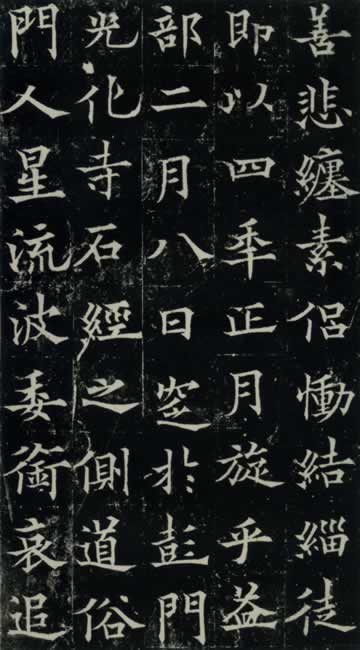 善悲纏素侶慟結緇徒
即以四年正月旋乎益
部二月八日窆於彭門
光化寺石經之側道俗
門人星流波委銜哀追